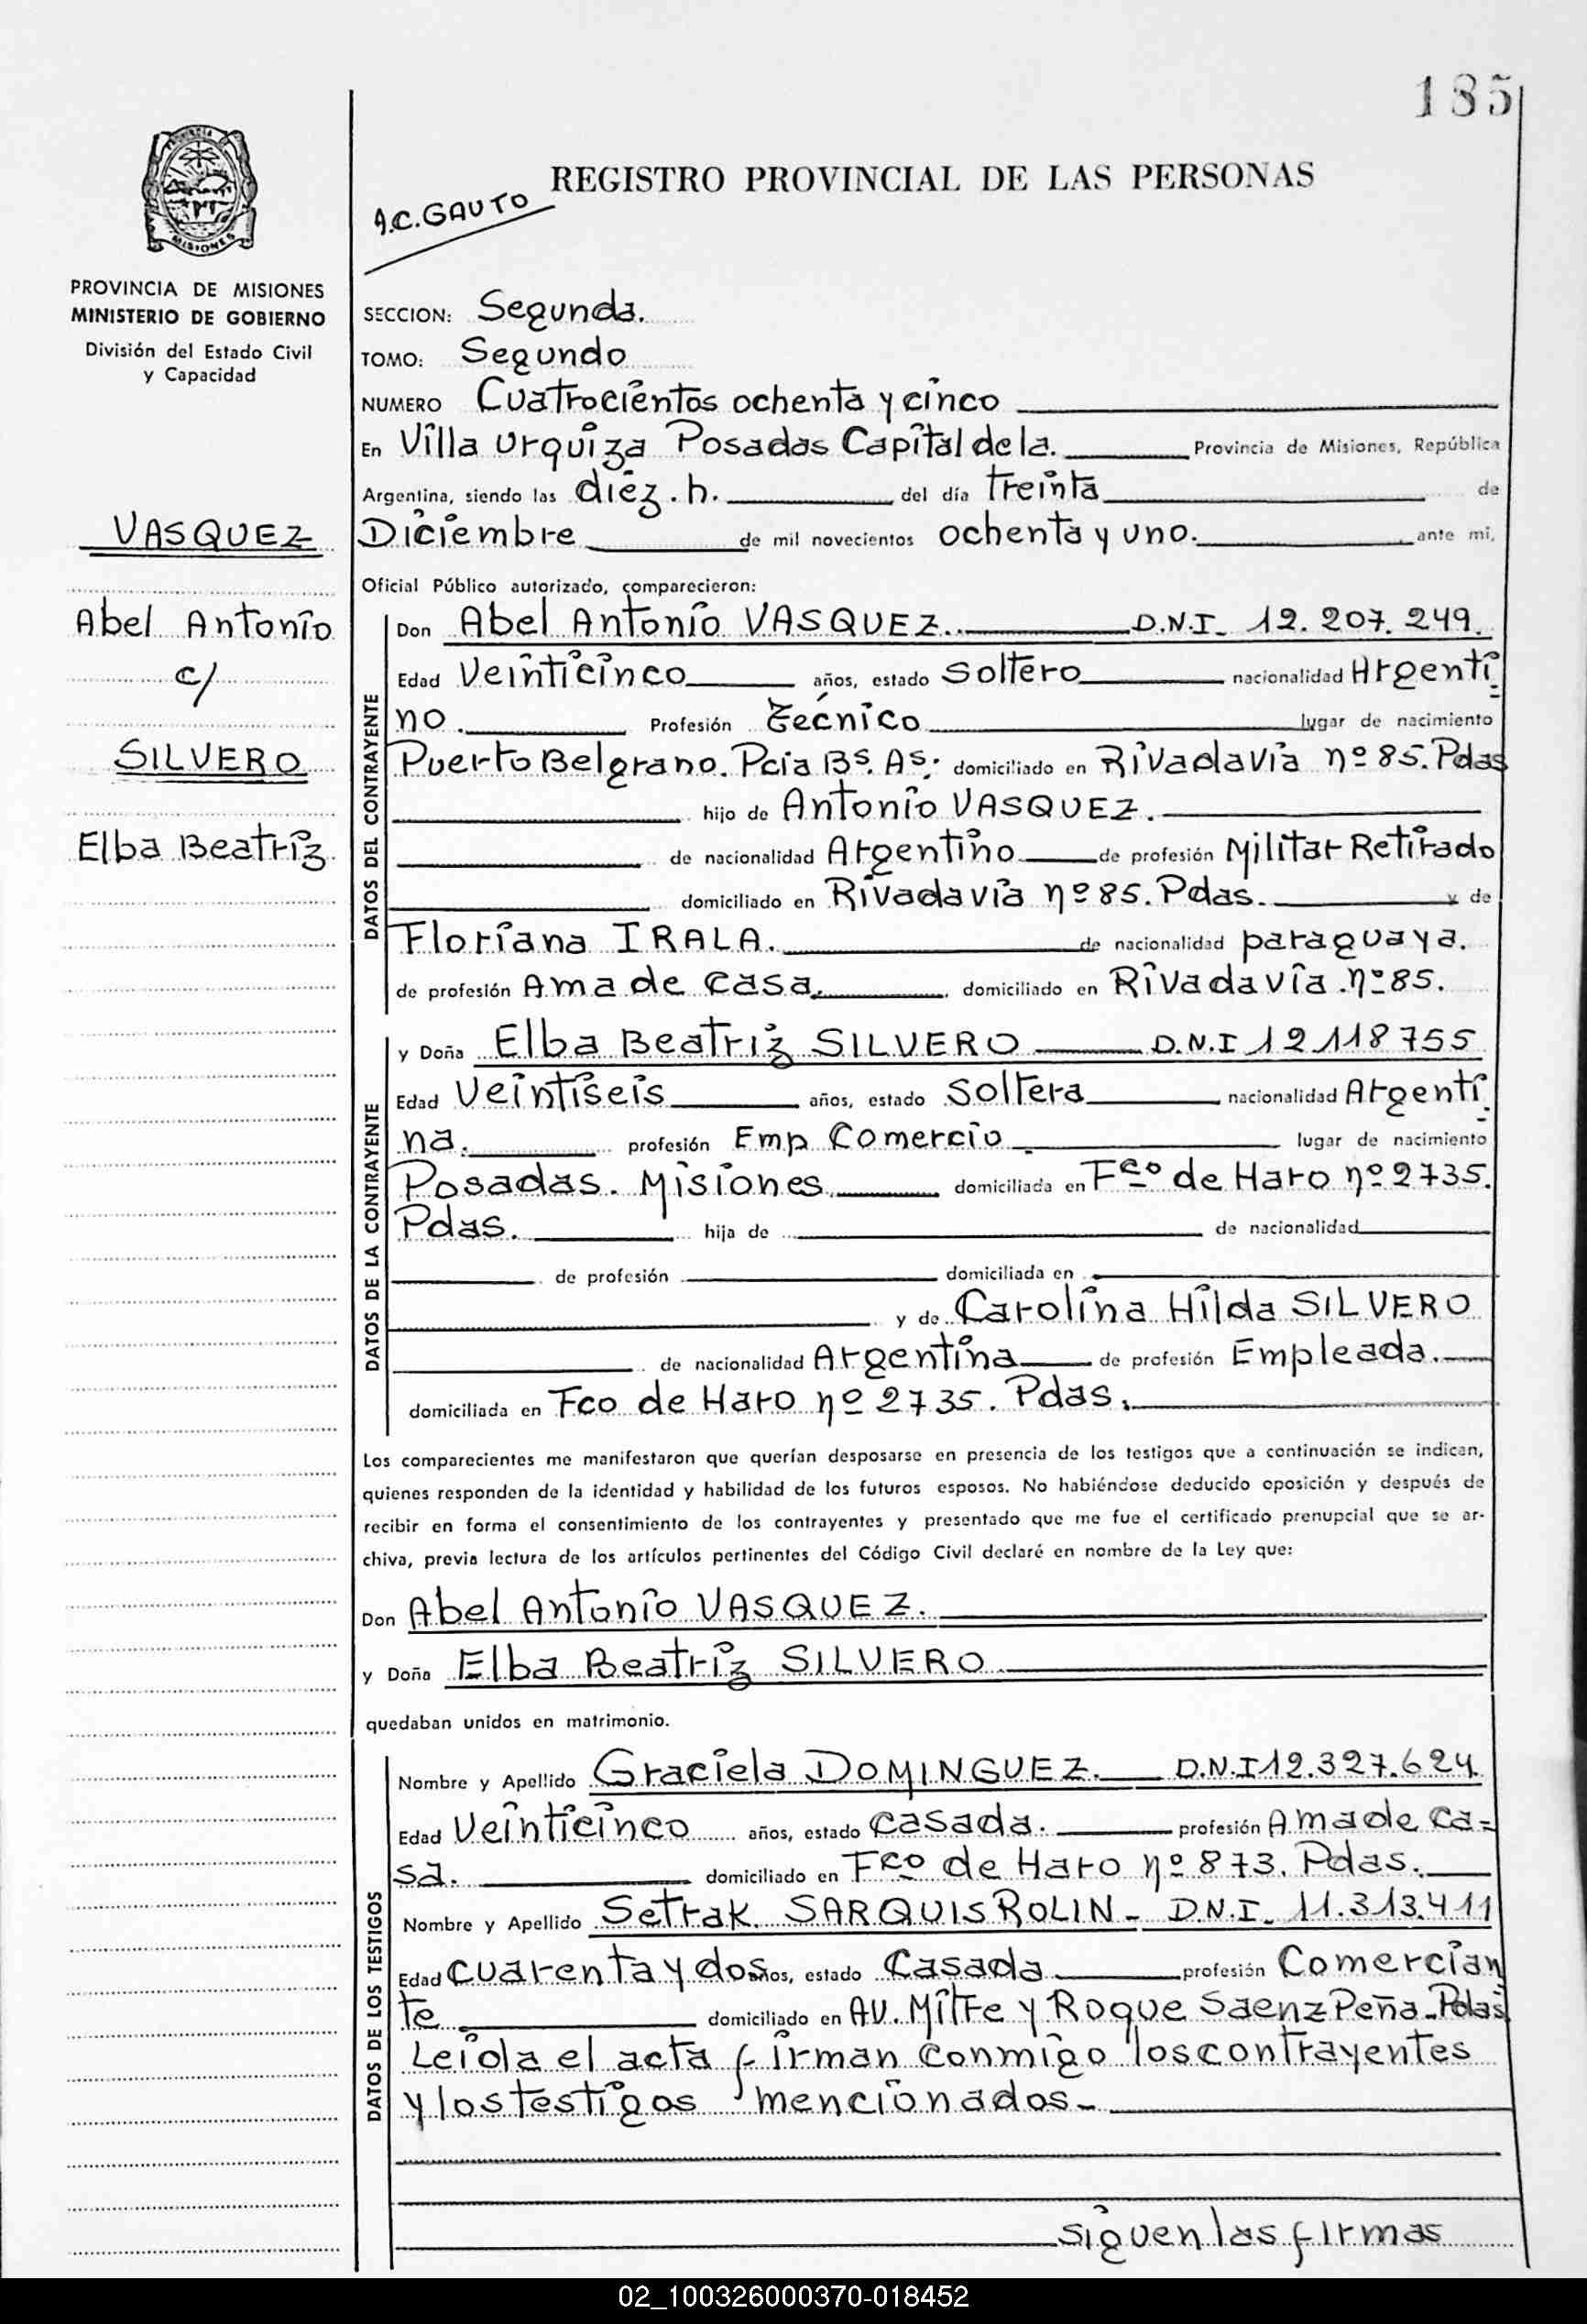 185
REGISTRO PROVINCIAL DE LAS PERSONAS
A.C. GAUTO
MISIONES
PROVINCIA DE MISIONES
MINISTERIO DE GOBIERNO
División del Estado Civil
y Capacidad
VASQUEZ
Abel Antonio
c/
SILVERO
Elba Beatriz
SECCION: Segunda.
TOMO: Segundo
NUMERO Cuatrocientos ochenta y cinco
En Villa Urquiza Posadas Capital de la. Provincia de Misiones, República
Argentina, siendo las diez. h. del día treinta de
Diciembre de mil novecientos ochenta y uno. ante mi,
Oficial Público autorizado, comparecieron:
DATOS DEL CONTRAYENTE
Don Abel Antonio VASQUEZ. D.N.I. 12.207.249.
Edad Veinticinco años, estado Soltero nacionalidad Argenti
no. Profesión técnico lugar de nacimiento
Puerto Belgrano. Pcia Bs. As. domiciliado en Rivadavia nº 85. Pdas
hijo de Antonio VASQUEZ.
de nacionalidad Argentino de profesión Militar Retirado
domiciliado en Rivadavia nº 85. Pdas. y de
Floriana IRALA. de nacionalidad paraguaya.
de profesión Ama de casa. domiciliado en Rivadavia. nº 85.
DATOS DE LA CONTRAYENTE
y Doña Elba Beatriz SILVERO D.N.I 12118755
Edad Veintiseis años, estado Soltera nacionalidad Argenti
na. profesión Emp Comercio lugar de nacimiento
Posadas. Misiones domiciliada en Fco de Haro nº 2735.
Pdas. hija de de nacionalidad
de profesión domiciliada en
y de Carolina Hilda SILVERO
de nacionalidad Argentina de profesión Empleada.
domiciliada en Fco de Haro nº 2735. Pdas.
Los comparecientes me manifestaron que querían desposarse en presencia de los testigos que a continuación se indican,
quienes responden de la identidad y habilidad de los futuros esposos. No habiéndose deducido oposición y después de
recibir en forma el consentimiento de los contrayentes y presentado que me fue el certificado prenupcial que se ar-
chiva, previa lectura de los artículos pertinentes del Código Civil declaré en nombre de la Ley que:
Don Abel Antonio VASQUEZ.
y Doña Elba Beatriz SILVERO
quedaban unidos en matrimonio.
DATOS DE LOS TESTIGOS
Nombre y Apellido Graciela DOMINGUEZ. D.N.I 12.327.624
Edad Veinticinco años, estado casada. profesión Ama de ca=
sa. domiciliado en Fco de Haro nº 873. Pdas.
Nombre y Apellido Setrak SARQUIS ROLIN - D.N.I. 11.313.411
Edad cuarenta y dos años, estado Casada profesión Comercian
te domiciliado en AV. Mitre y Roque Saenz Peña - Pdas
Leida el acta firman conmigo los contrayentes
y los testigos mencionados -
siguen las firmas
02_100326000370-018452